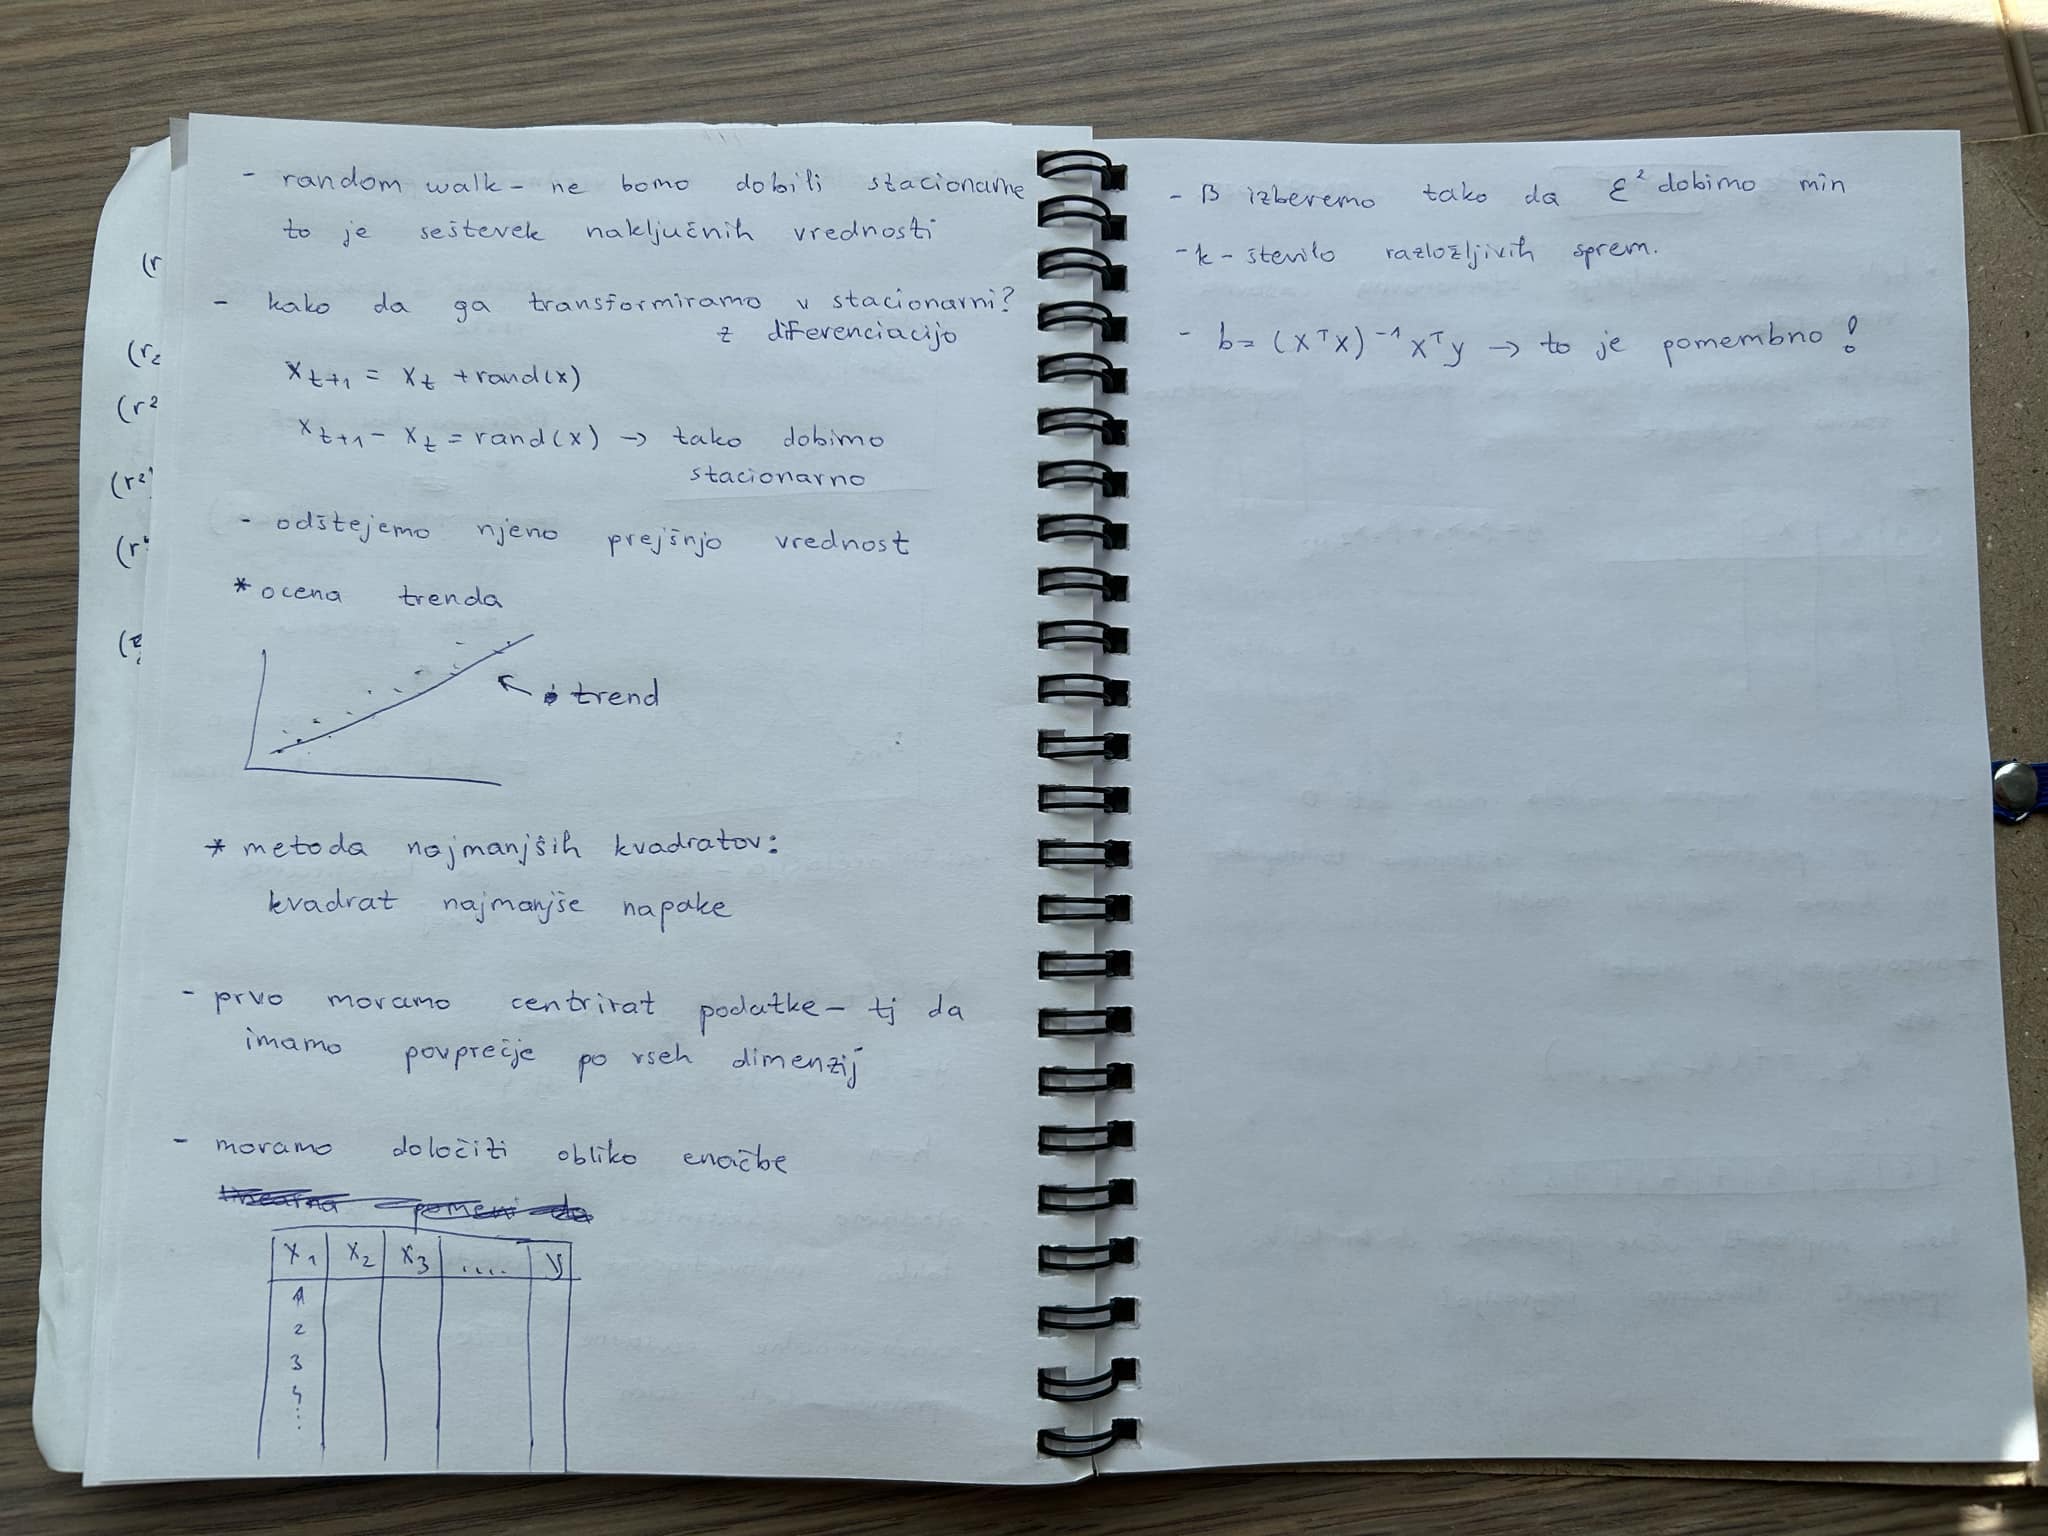 - random walk - ne bomo dobili stacionarne
to je seštevek naključnih vrednosti
- kako da ga transformiramo v stacionarni?
z diferenciacijo
x_{t+1} = x_t + rand(x)
x_{t+1} - x_t = rand(x) → tako dobimo
stacionarno
- odštejemo njeno prejšnjo vrednost
* ocena trenda
trend
* metoda najmanjših kvadratov:
kvadrat najmanjše napake
- prvo moramo centrirat podatke - tj da
imamo povprečje po vseh dimenzij
- moramo določiti obliko enačbe
linearna pomeni da
x_1 x_2 x_3 .... y
1
2
3
4
- B izberemo tako da ε² dobimo min
- k - število razložljivih sprem.
- b = (X^T X)^{-1} X^T y → to je pomembno!
(r
(r_2
(r²
(r²)